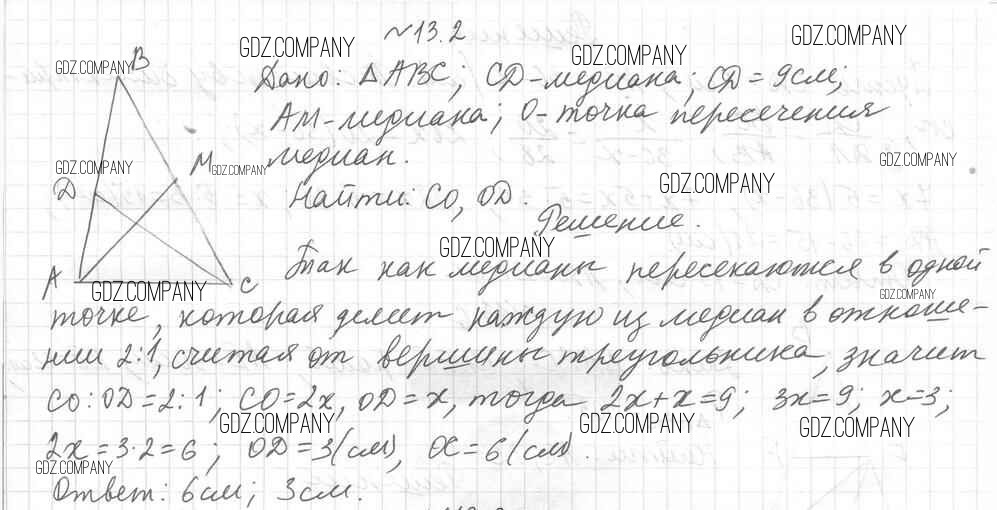 №13.2
GDZ.COMPANY GDZ.COMPANY GDZ.COMPANY
B
GDZ.COMPANY
Дано: △ABC; CD-медиана; CD=9см;
AM-медиана; O-точка пересечения
GDZ.COMPANY M GDZ.COMPANY медиан. GDZ.COMPANY
D Найти: CO, OD. GDZ.COMPANY
Решение.
GDZ.COMPANY
A GDZ.COMPANY C Так как медианы пересекаются в одной
GDZ.COMPANY
точке, которая делит каждую из медиан в отноше-
нии 2:1, считая от вершины треугольника, значит
CO:OD=2:1; CO=2x, OD=x, тогда 2x+x=9; 3x=9; x=3;
GDZ.COMPANY GDZ.COMPANY GDZ.COMPANY
2x=3·2=6; OD=3(см), OC=6(см).
GDZ.COMPANY
Ответ: 6см; 3см.